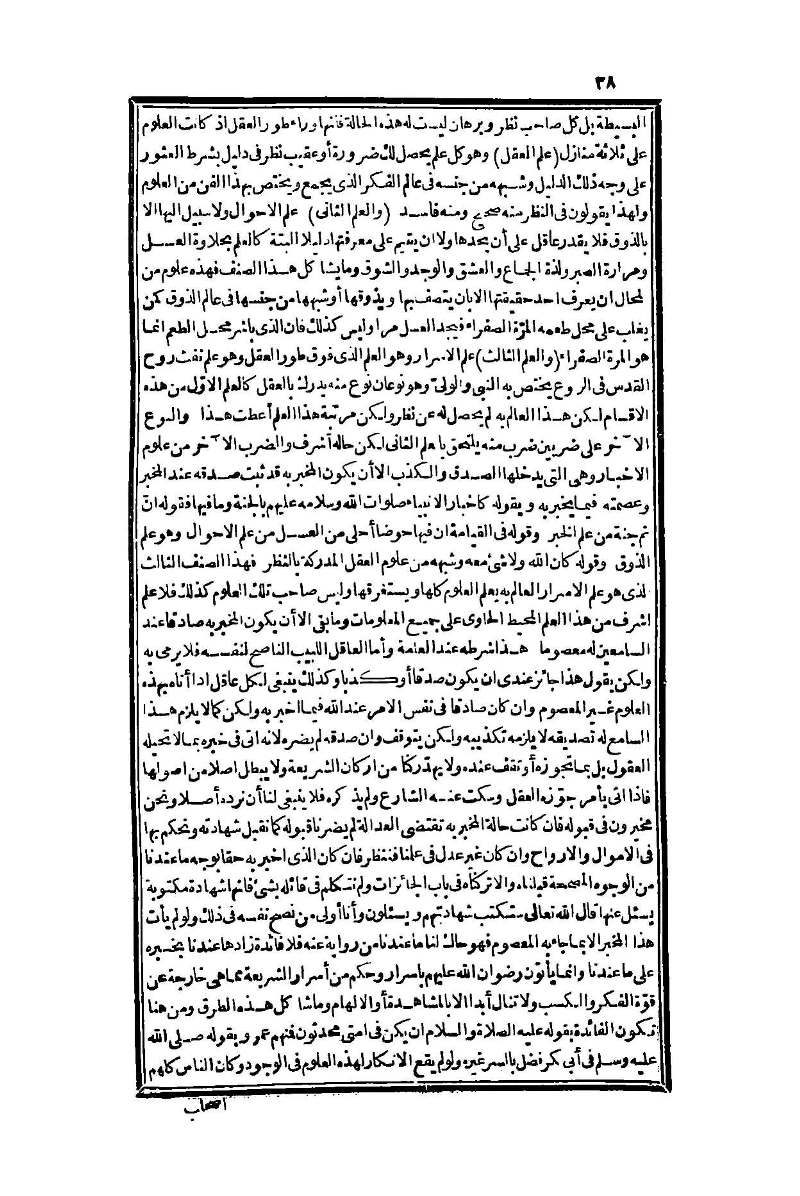 ٣٨
البسيطة بل كل صاحب نظر وبرهان ليست له هذه الحالة فانها وراء طور العقل اذ كانت العلوم
على ثلاثة منازل (علم العقل) وهو كل علم يحصل لك ضرورة أو عقيب نظر فى دليل بشرط العثور
على وجه ذلك الدليل وشبهه من جنسه فى عالم الفكر الذى يجمع ويختص بهذا الفن من العلوم
ولهذا يقولون فى النظر منه صحيح ومنه فاسد (والعلم الثانى) علم الاحوال ولا سبيل اليها الا
بالذوق فلا يقدر عاقل على أن يحدها ولا ان يقيم على معرفتها دليلا البتة كالعلم بحلاوة العسل
ومرارة الصبر ولذة الجماع والعشق والوجد والشوق وما يشا كل هذا الصنف فهذه علوم من
لمحال ان يعرف احد حقيقتها الا بان يتصف بها ويذوقها أو شبهها من جنسها فى عالم الذوق كمن
يغلب على محل طعمه المرّة الصفراء فيجد العسل مرا وليس كذلك فان الذى باشر محل الطعم انما
هو المرة الصفراء (والعلم الثالث) علم الاسرار وهو العلم الذى فوق طور العقل وهو علم نفث روح
القدس فى الروع يختص به النبى والولىّ وهو نوعان نوع منه يدرك بالعقل كالعلم الاوّل من هذه
الاقسام لكن هذا العالم به لم يحصل له عن نظر ولكن مرتبة هذا العلم أعطت هذا والنوع
الآخر على ضربين ضرب منه يلتحق بالعلم الثانى لكن حاله أشرف والضرب الآخر من علوم
الاخبار وهى التى يدخلها الصدق والكذب الا أن يكون المخبر به قد ثبت صدقه عند المخبر
وعصمته فيما يخبر به ويقوله كاخبار الانبياء صلوات الله وسلامه عليهم بالجنة وما فيها فقوله انّ
ثم جنة من علم الخبر وقوله فى القيامة ان فيها حوضا أحلى من العسل من علم الاحوال وهو علم
الذوق وقوله كان الله ولا شئ معه وشبهه من علوم العقل المدركة بالنظر فهذا الصنف الثالث
لذى هو علم الاسرار العالم به يعلم العلوم كلها ويستغرقها وليس صاحب تلك العلوم كذلك فلا علم
اشرف من هذا العلم المحيط الحاوى على جميع المعلومات وما بقى الا أن يكون المخبر به صادقا عند
السامعين له معصوما هذا شرطه عند العامة وأما العاقل اللبيب الناصح لنفسه فلا يرمى به
ولكن يقول هذا جائز عندى ان يكون صدقا أو كذبا وكذلك ينبغى لكل عاقل اذا أتاه بهذه
العلوم غير المعصوم وان كان صادقا فى نفس الامر عند الله فيما اخبر به ولكن كما لا يلزم هذا
السامع له تصديقه لا يلزمه تكذيبه ولكن يتوقف وان صدقه لم يضره لانه اتى فى خبره بما لا تحيله
العقول بل بما تجوزه أو تقف عنده ولا يهدّ ركنا من اركان الشريعة ولا يبطل اصلا من اصولها
فاذا اتى بأمر جوّزه العقل وسكت عنه الشارع ولم يذكره فلا ينبغى لنا أن نرده أصلا ونحن
مخيرون فى قبوله فان كانت حالة المخبر به تقتضى العدالة لم يضرنا قبوله كما نقبل شهادته ونحكم بها
فى الاموال والارواح وان كان غير عدل فى علمنا فننظر فان كان الذى اخبر به حقا بوجه ما عندنا
من الوجوه المصححة قبلناه والا تركناه فى باب الجائزات ولم نتكلم فى قائله بشئ فانها شهادة مكتوبة
يسئل عنها قال الله تعالى ستكتب شهادتهم ويسئلون وأنا أولى من نصح نفسه فى ذلك ولو لم يأت
هذا المخبر الا بما جاء به المعصوم فهو حاك لنا ما عندنا من رواية عنه فلا فائدة زادها عندنا بخبره
على ما عندنا وانما يأتون رضوان الله عليهم باسرار وحكم من أسرار الشريعة مما هى خارجة عن
قوّة الفكر والكسب ولا تنال أبدا الا بالمشاهدة أو الالهام وما شا كل هذه الطرق ومن هنا
تكون الفائدة بقوله عليه الصلاة والسلام ان يكن فى امتى محدثون فمنهم عمر وبقوله صلى الله
عليه وسلم فى أبى بكر فضل بالسر غيره ولو لم يقع الانكار لهذه العلوم فى الوجود وكان الناس كلهم
اصحاب